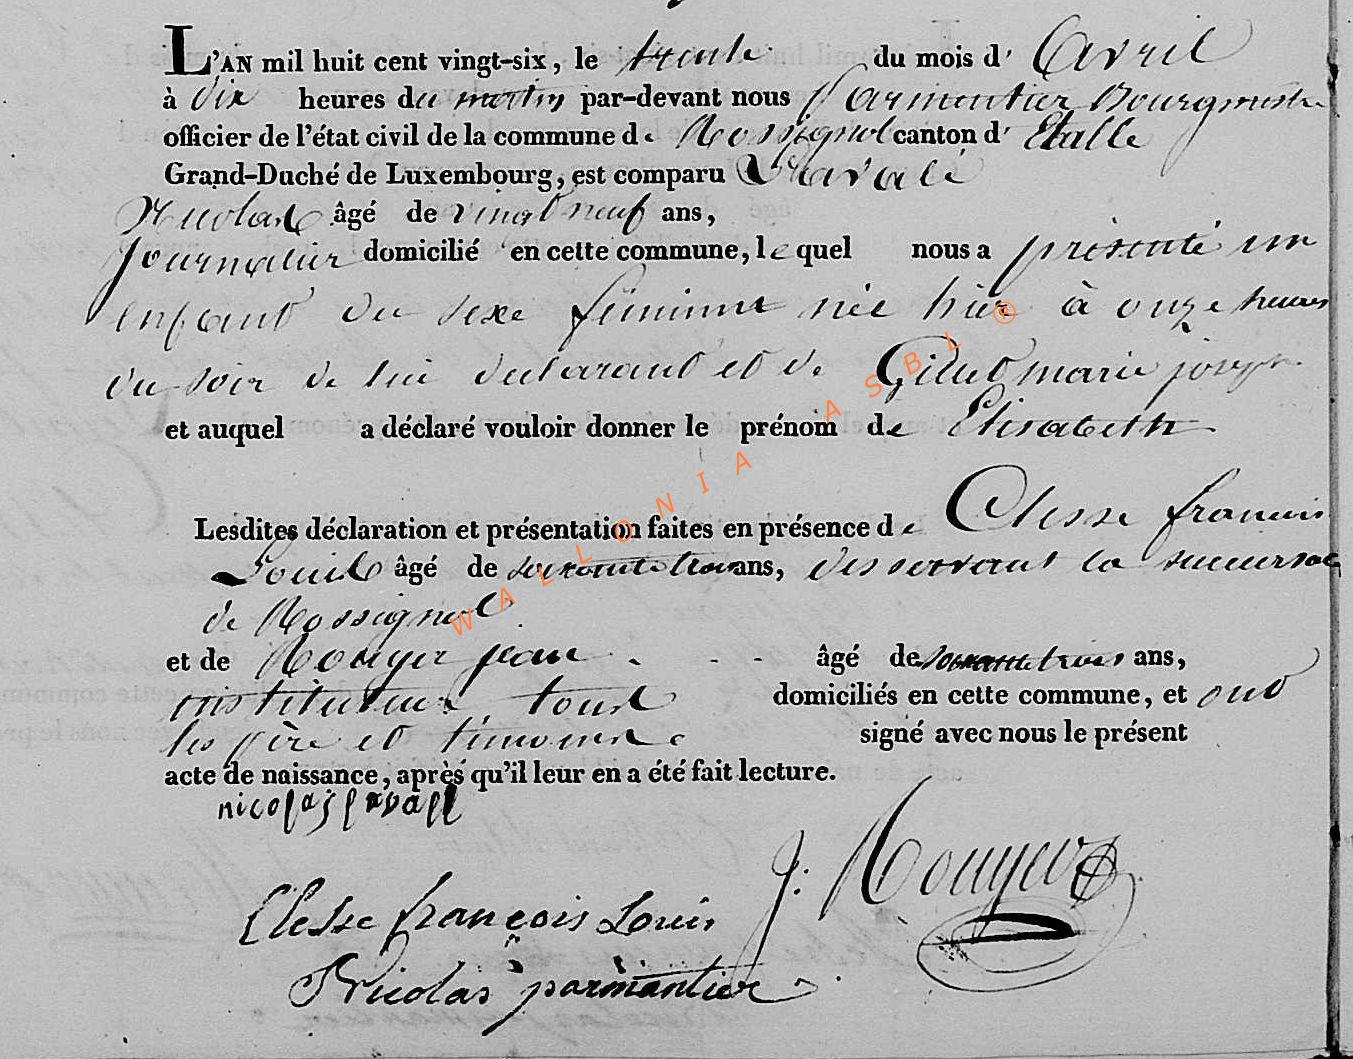 L'AN mil huit cent vingt-six, le trente du mois d'avril
à dix heures du matin par-devant nous Parmentier Bourgmestre
officier de l'état civil de la commune de Rossignol canton d'Etalle
Grand-Duché de Luxembourg, est comparu
Nicolas âgé de vingt neuf ans,
Journalier domicilié en cette commune, lequel nous a présenté un
enfant du sexe féminin née hier à onze heures
du soir de lui déclarant et de marie joseph
et auquel a déclaré vouloir donner le prénom de Elisabeth
Lesdites déclaration et présentation faites en présence de Clesse francois
Louis âgé de soixante trois ans, desservant la succursale
de Rossignol
et de Rouyer jean . - - - âgé de ans,
instituteur, tous domiciliés en cette commune, et ont
les père et témoins signé avec nous le présent
acte de naissance, après qu'il leur en a été fait lecture.
nicolas
J: Rouyer
Clesse françois Louis
Nicolas parmantier
WALLONIA ASBL ®